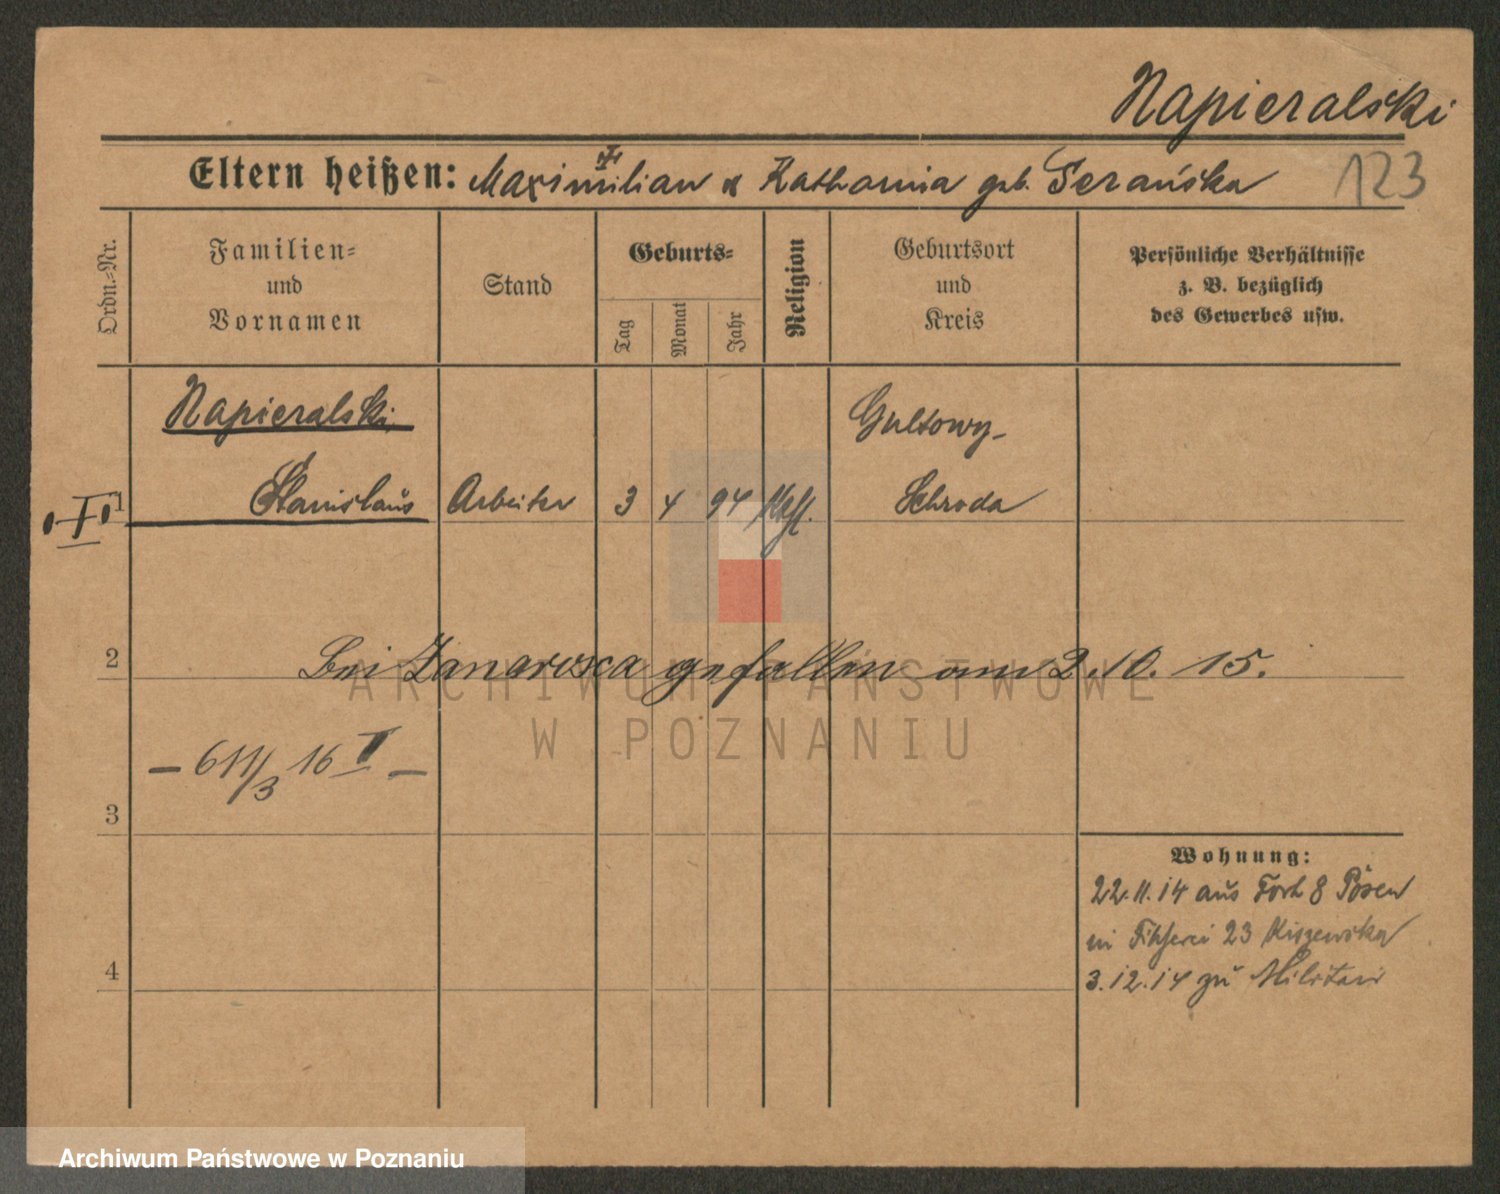 Napieralski
Eltern heißen: Maximilian & Katharina geb. Serańska
123
Ordn.-Nr.
Familien-
und
Vornamen
Stand
Geburts-
Tag
Monat
Jahr
Religion
Geburtsort
und
Kreis
Persönliche Verhältnisse
z. B. bezüglich
des Gewerbes usw.
Napieralski,
Gultowy-
1
Stanislaus
Arbeiter
3
4
94
Kath.
Schroda
2
Bei gefallen am 2.10.15.
ARCHIWUM PAŃSTWOWE
W POZNANIU
- 611/3 16 -
3
Wohnung:
22.11.14 aus Fort 8 Posen
in Fischerei 23 Kiszewska
4
3.12.14 zu Militär
Archiwum Państwowe w Poznaniu